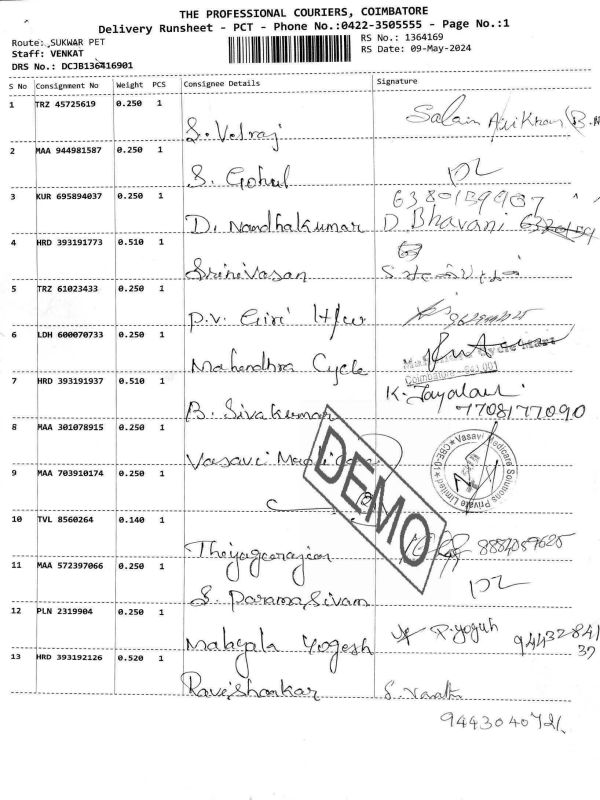 THE PROFESSIONAL COURIERS, COIMBATORE
Delivery Runsheet - PCT - Phone No.:0422-3505555 - Page No.:1
Route: SUKWAR PET
RS No.: 1364169
Staff: VENKAT
RS Date: 09-May-2024
DRS No.: DCJB136416901
S No Consignment No Weight PCS Consignee Details Signature
1 TRZ 45725619 0.250 1
S. Velraj Salain
2 MAA 944981587 0.250 1
S. Gohul
3 KUR 695894037 0.250 1
6380159937
D. Nandhakumar D. Bhavani
4 HRD 393191773 0.510 1
Srinivasan
5 TRZ 61023433 0.250 1
P.V. Giri H/w
6 LDH 600070733 0.250 1
Mahendhra Cycle
Coimbatore - 641 001
7 HRD 393191937 0.510 1
B. Sivakumar K. Jayalaxi
7708177090
8 MAA 301078915 0.250 1
Vasavi
Vasavi Medicare Solutions Private Limited ★ CBE-01 ★
DEMO
9 MAA 703910174 0.250 1
10 TVL 8560264 0.140 1
Thiyagarajan
11 MAA 572397066 0.250 1
S. Paramasivam
12 PLN 2319904 0.250 1
Mahepala Yogesh P. Yoguh 94432841
37
13 HRD 393192126 0.520 1
Ravishankar
9443040721